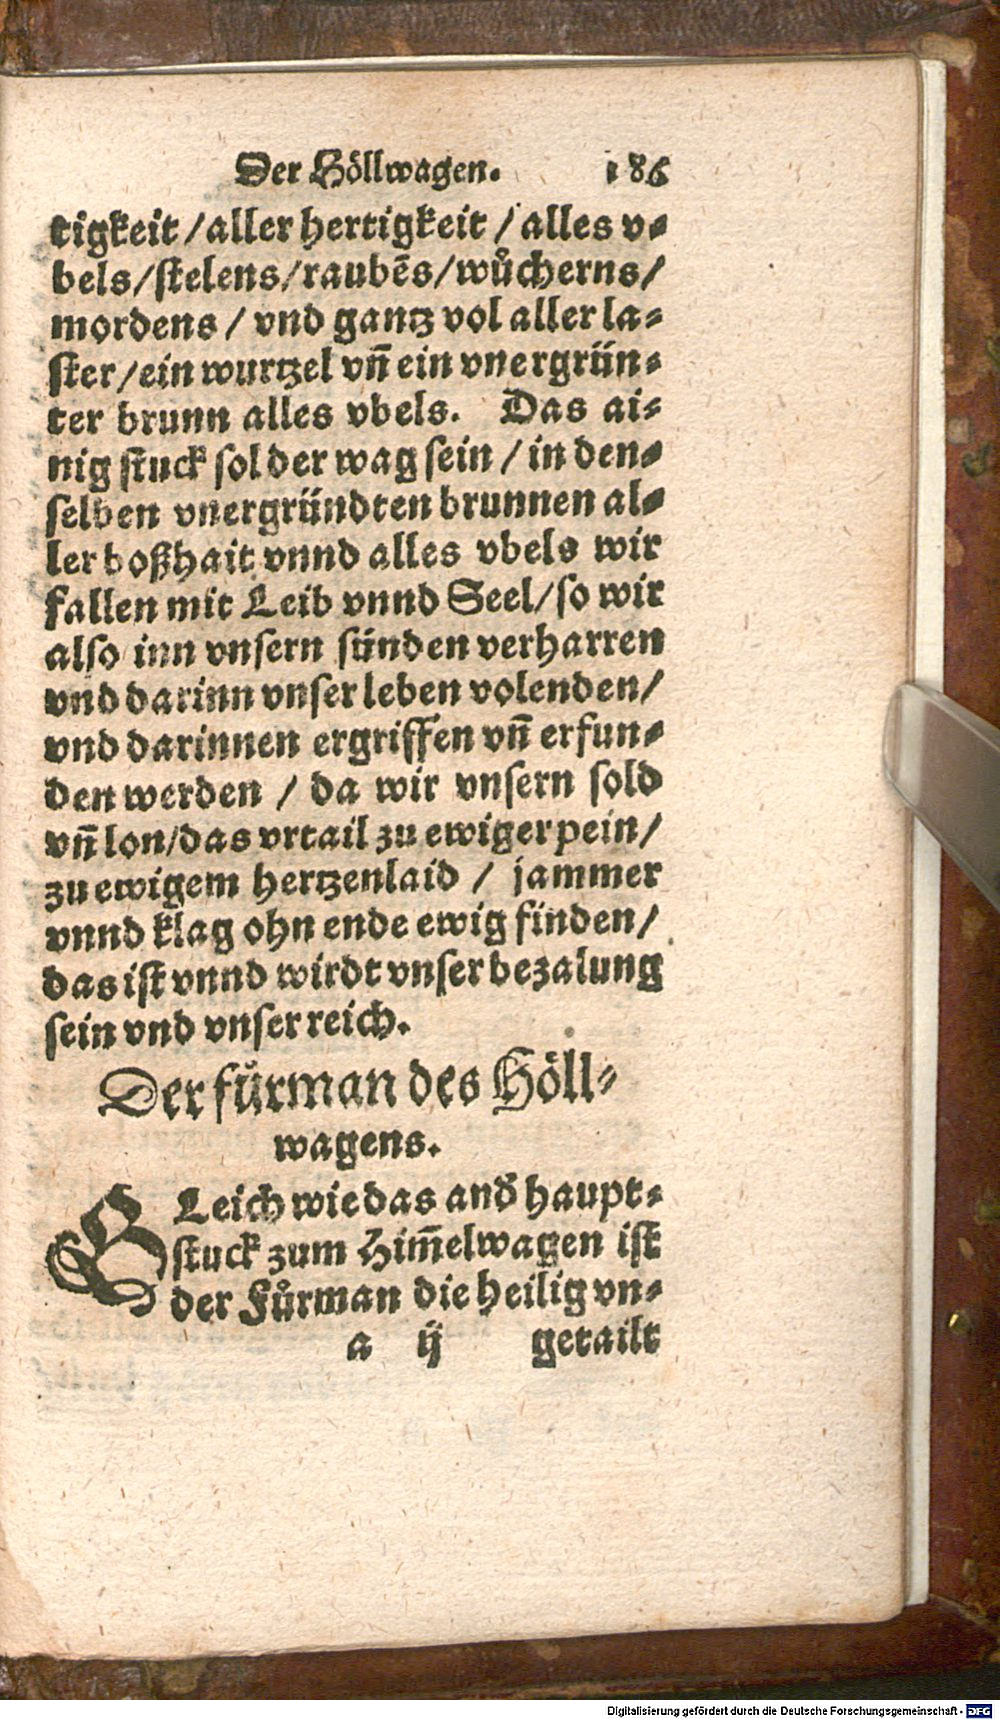 Der Höllwagen. 186
tigkeit / aller hertigkeit / alles v-
bels / stelens / raubēs / wůcherns /
mordens / vnd gantz vol aller la-
ster / ein wurtzel vñ ein vnergrün-
ter brunn alles vbels. Das ai-
nig stuck sol der wag sein / in den-
selben vnergründten brunnen al-
ler boßhait vnnd alles vbels wir
fallen mit Leib vnnd Seel / so wir
also inn vnsern sünden verharren
vnd darinn vnser leben volenden /
vnd darinnen ergriffen vñ erfun-
den werden / da wir vnsern sold
vñ lon / das vrtail zu ewiger pein /
zu ewigem hertzenlaid / jammer
vnnd klag ohn ende ewig finden /
das ist vnnd wirdt vnser bezalung
sein vnd vnser reich.
Der fůrman des Höll-
wagens.
GLeich wie das and̕ haupt-
stuck zum Him̅elwagen ist
der Fůrman die heilig vn-
a ij getailt
Digitalisierung gefördert durch die Deutsche Forschungsgemeinschaft - DFG